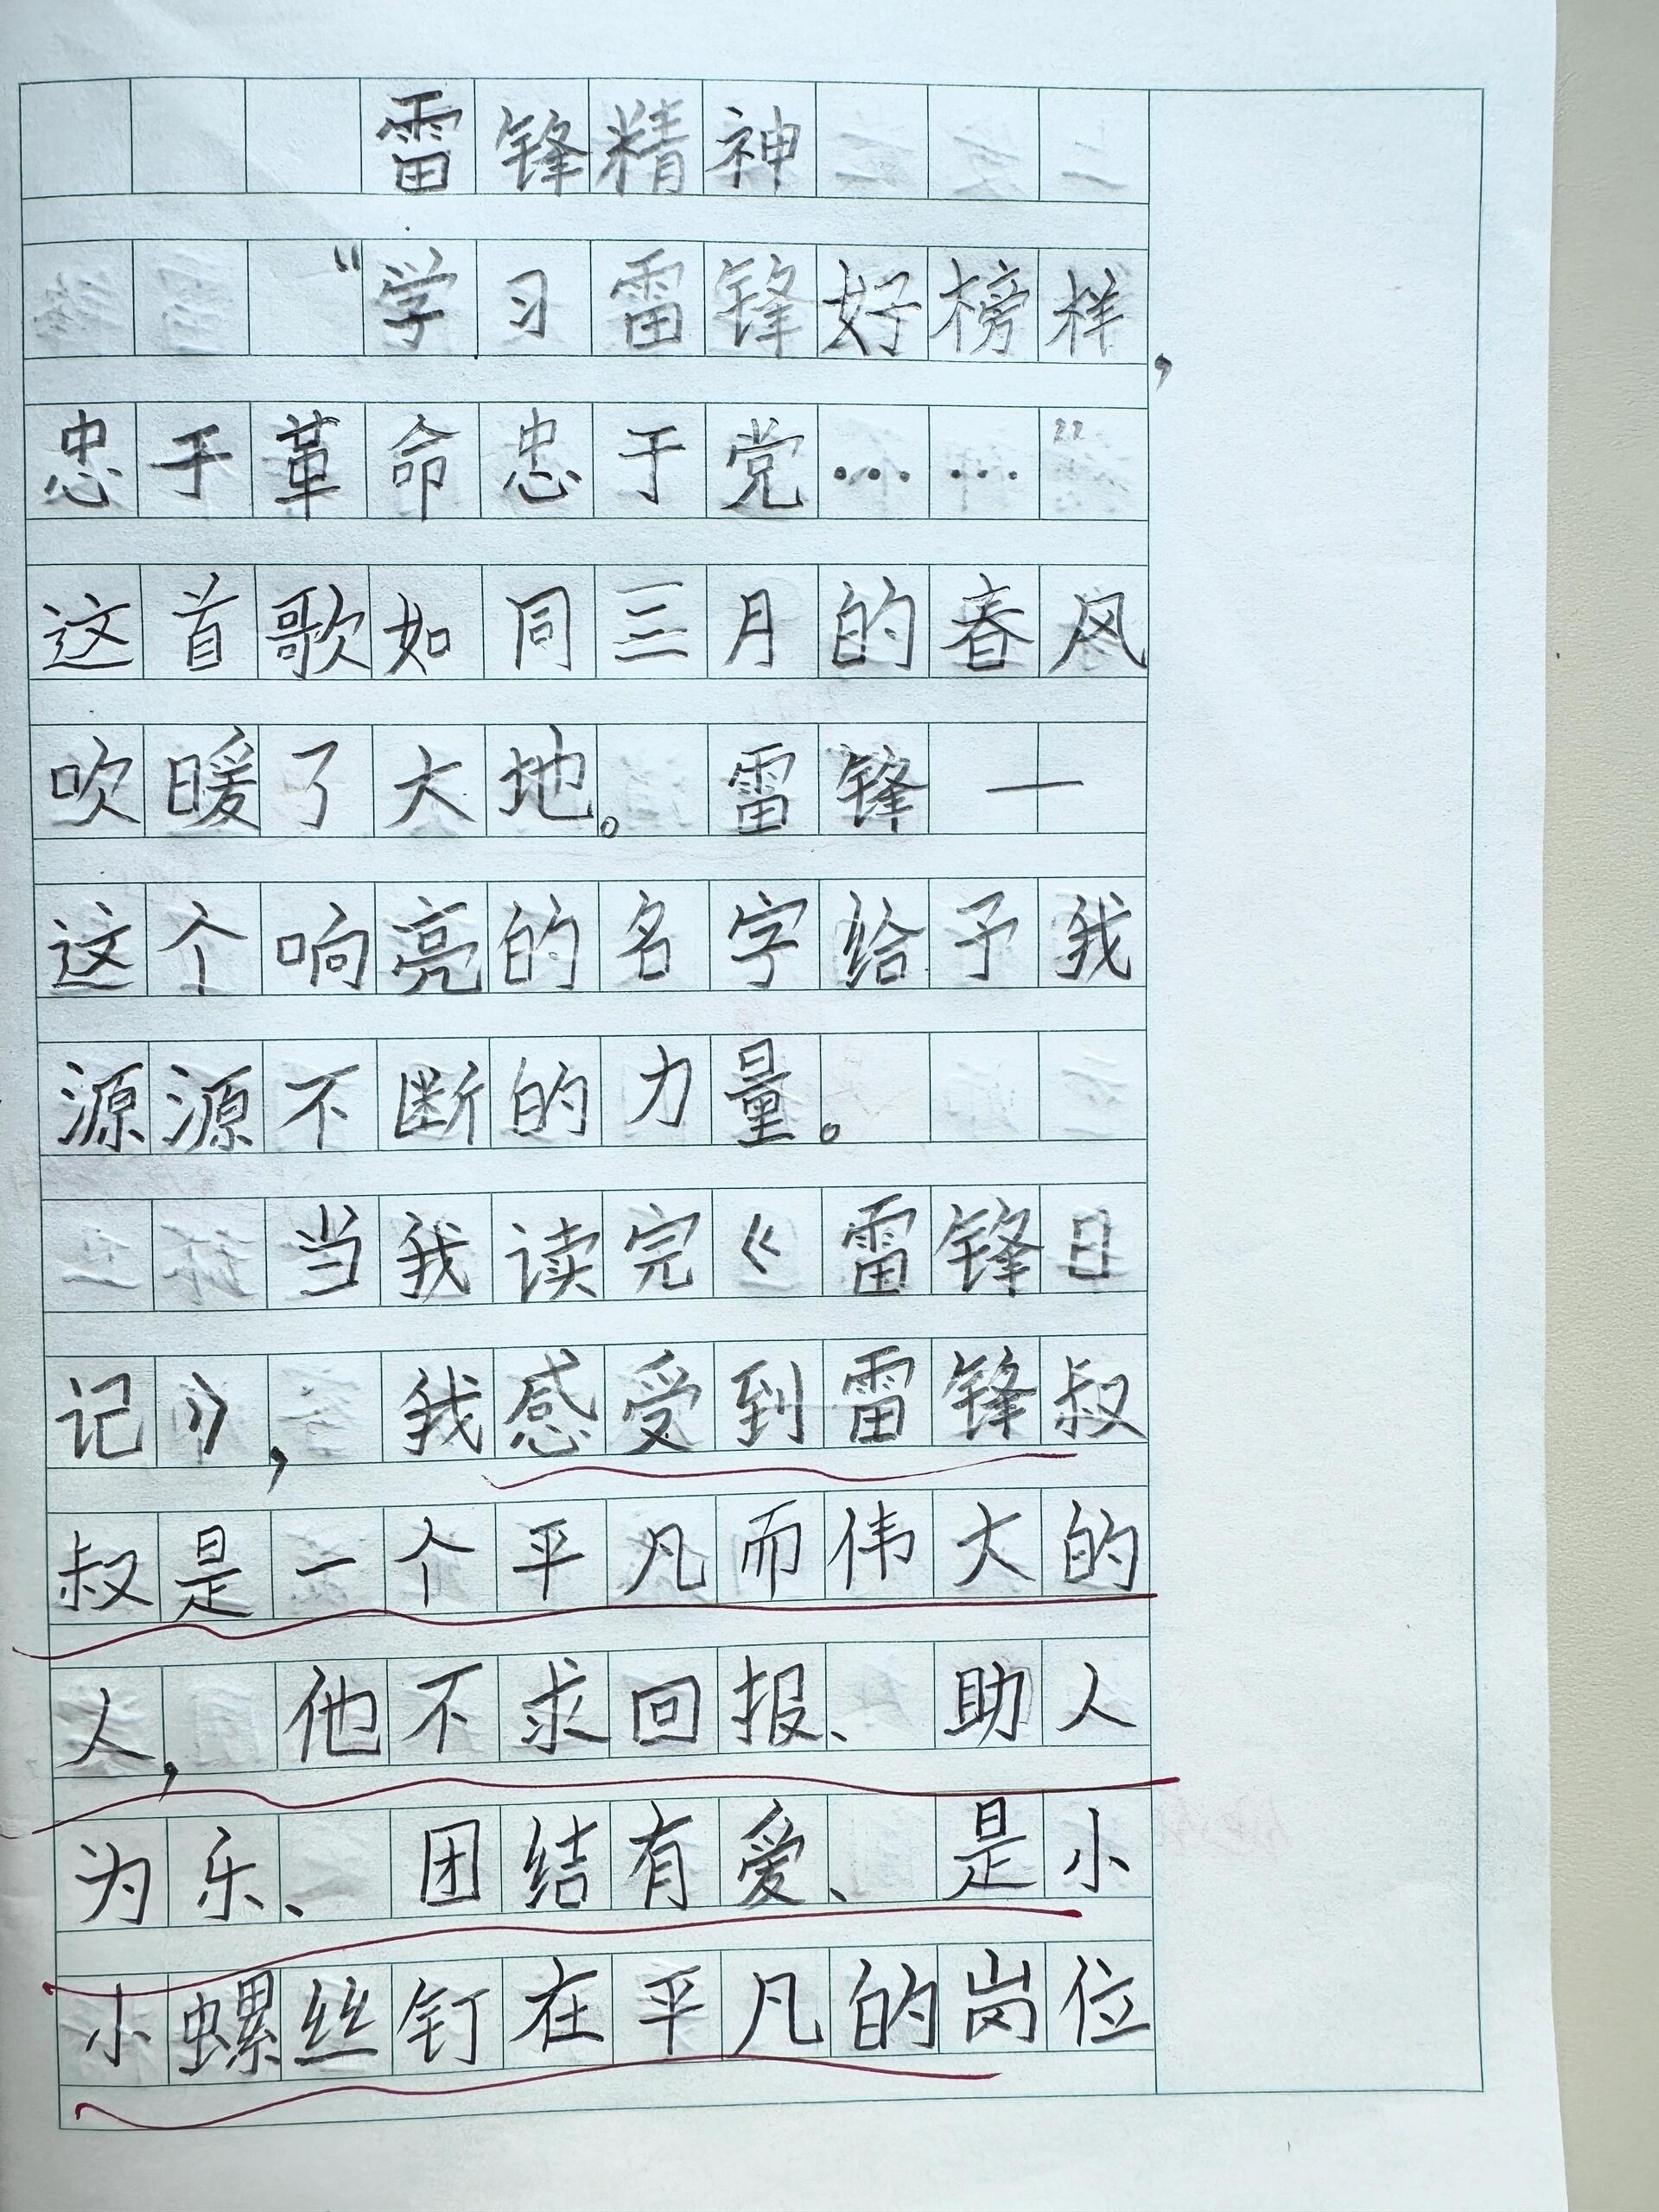 雷锋精神
“学习雷锋好榜样，
忠于革命忠于党……”
这首歌如同三月的春风
吹暖了大地。雷锋—
这个响亮的名字给予我
源源不断的力量。
当我读完《雷锋日
记》，我感受到雷锋叔
叔是一个平凡而伟大的
人，他不求回报、助人
为乐、团结有爱、是小
小螺丝钉在平凡的岗位